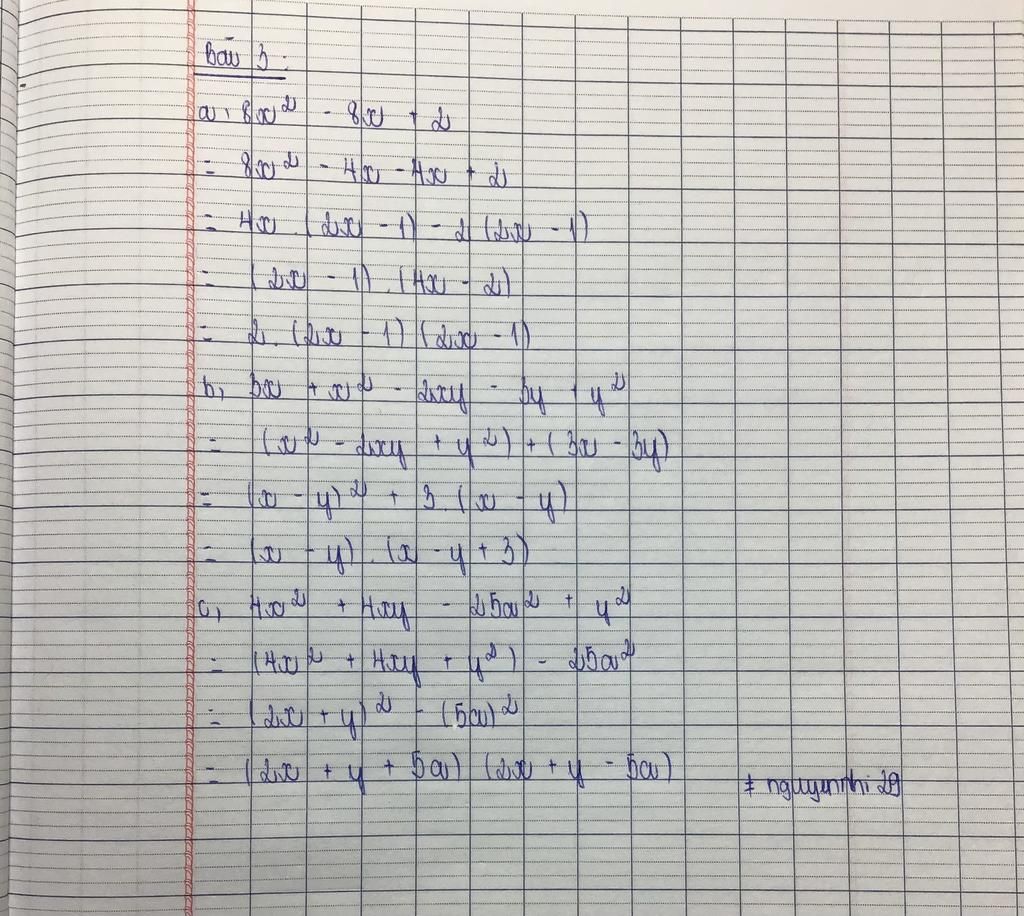 Bài 3:
a, 8x² - 8x + 2
= 8x² - 4x - 4x + 2
= 4x (2x - 1) - 2 (2x - 1)
= (2x - 1) . (4x - 2)
= 2. (2x - 1) (2x - 1)
b, 3x + x² - 2xy - 3y + y²
= (x² - 2xy + y²) + (3x - 3y)
= (x - y)² + 3. (x - y)
= (x - y) . (x - y + 3)
c, 4x² + 4xy - 25a² + y²
= (4x² + 4xy + y²) - 25a²
= (2x + y)² - (5a)²
= (2x + y + 5a) (2x + y - 5a)
# nguyennhi 29